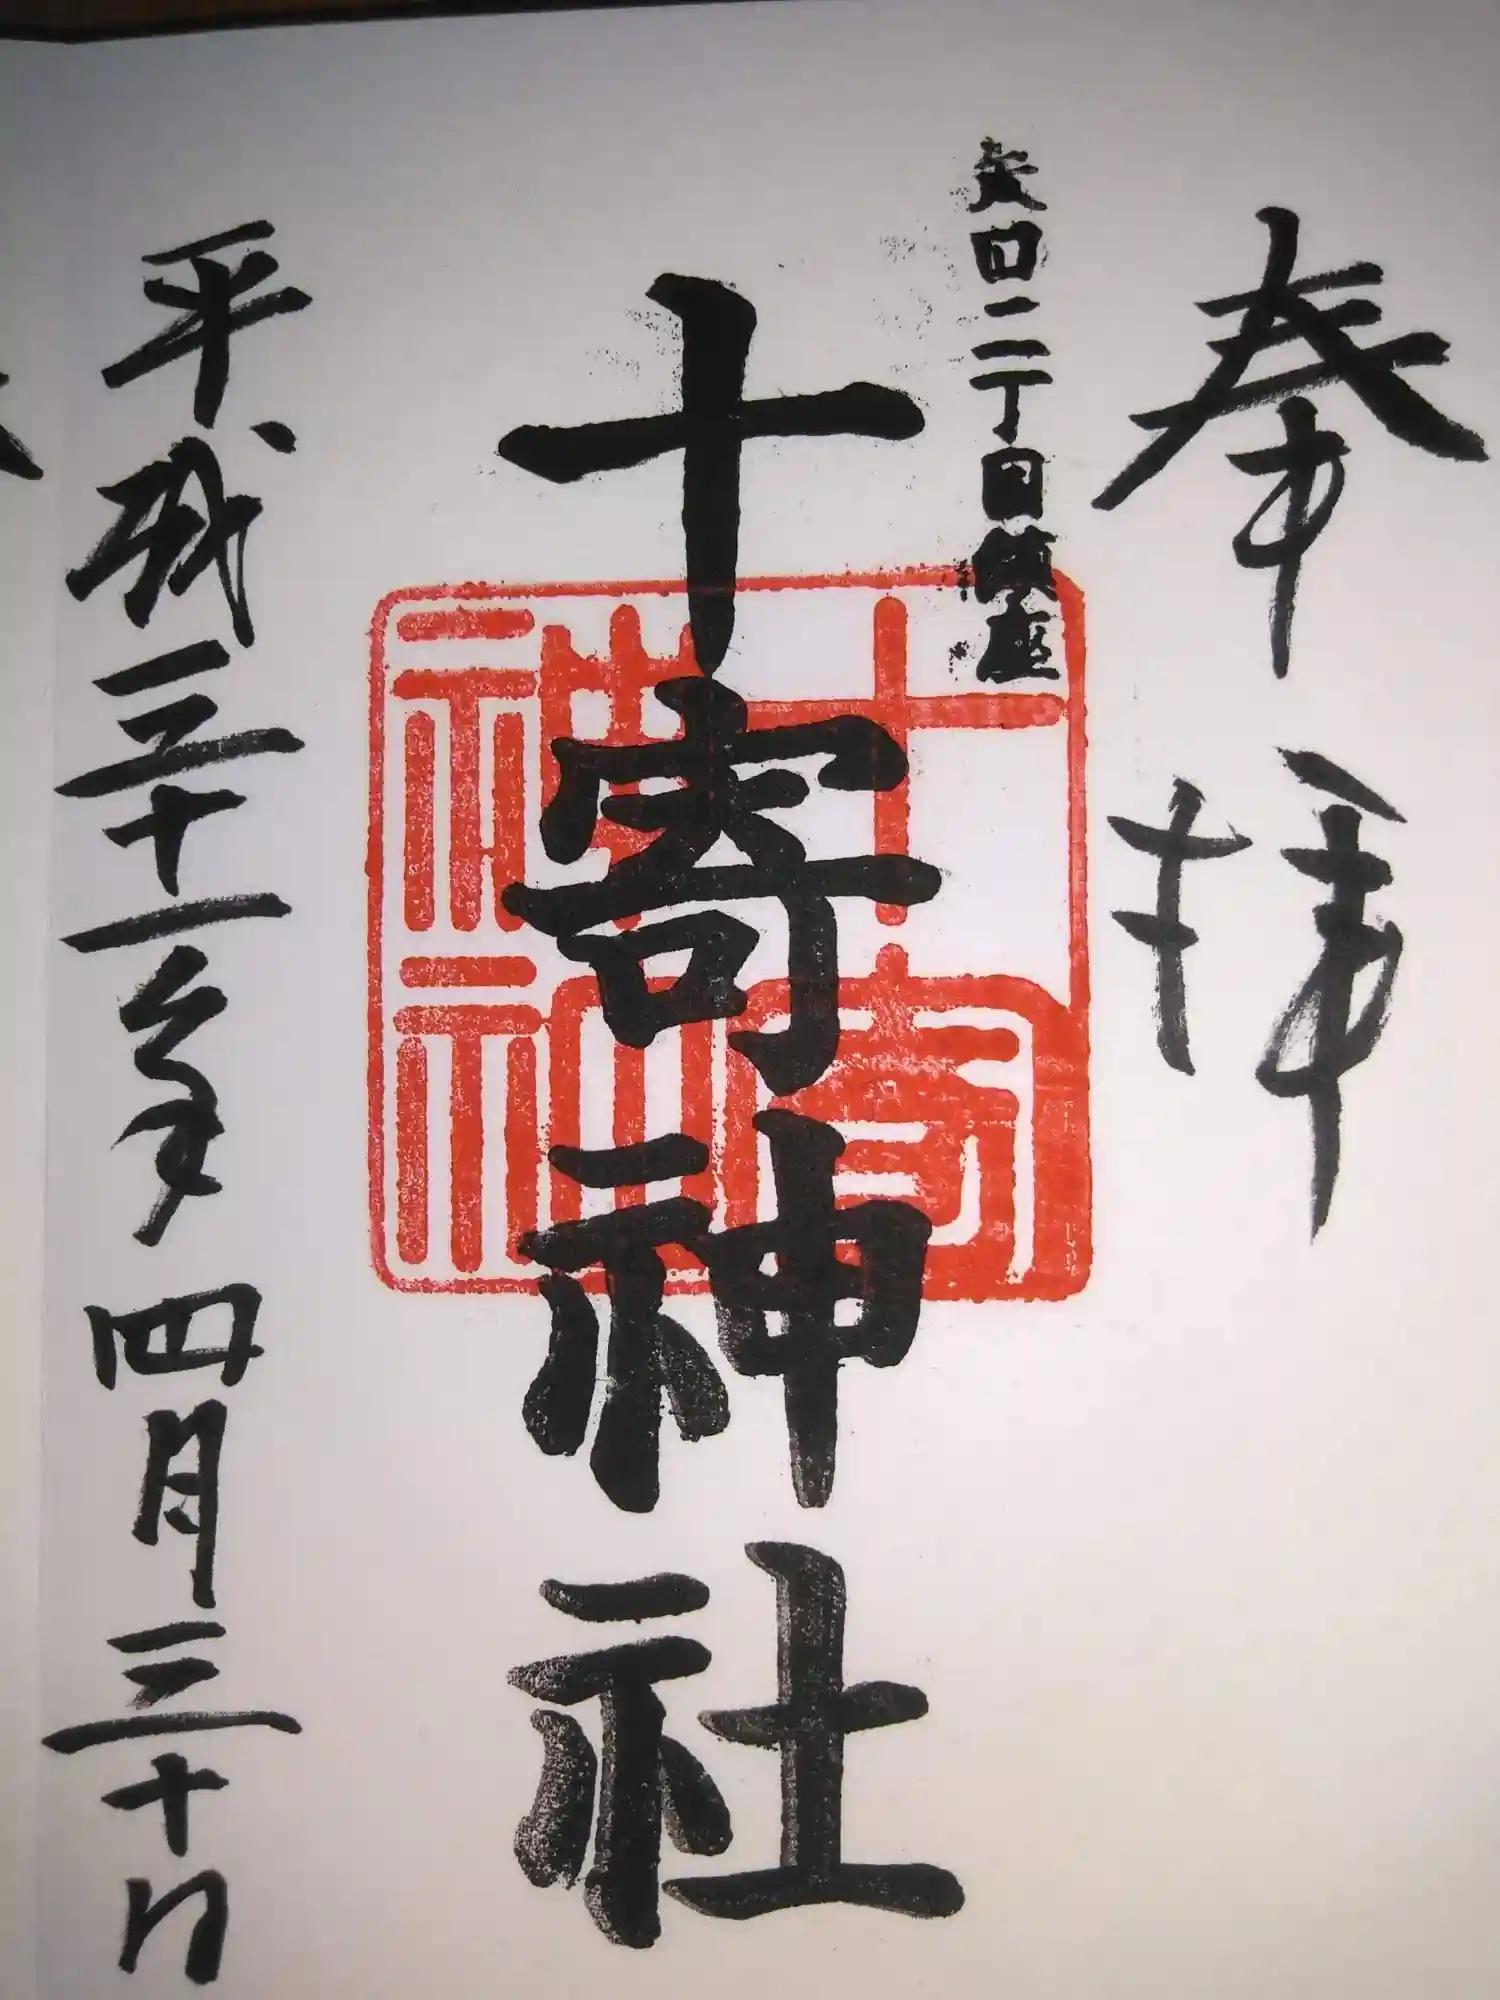 奉拝
矢口二丁目鎮座
十寄神社
十寄神社
平成三十一年四月三十日